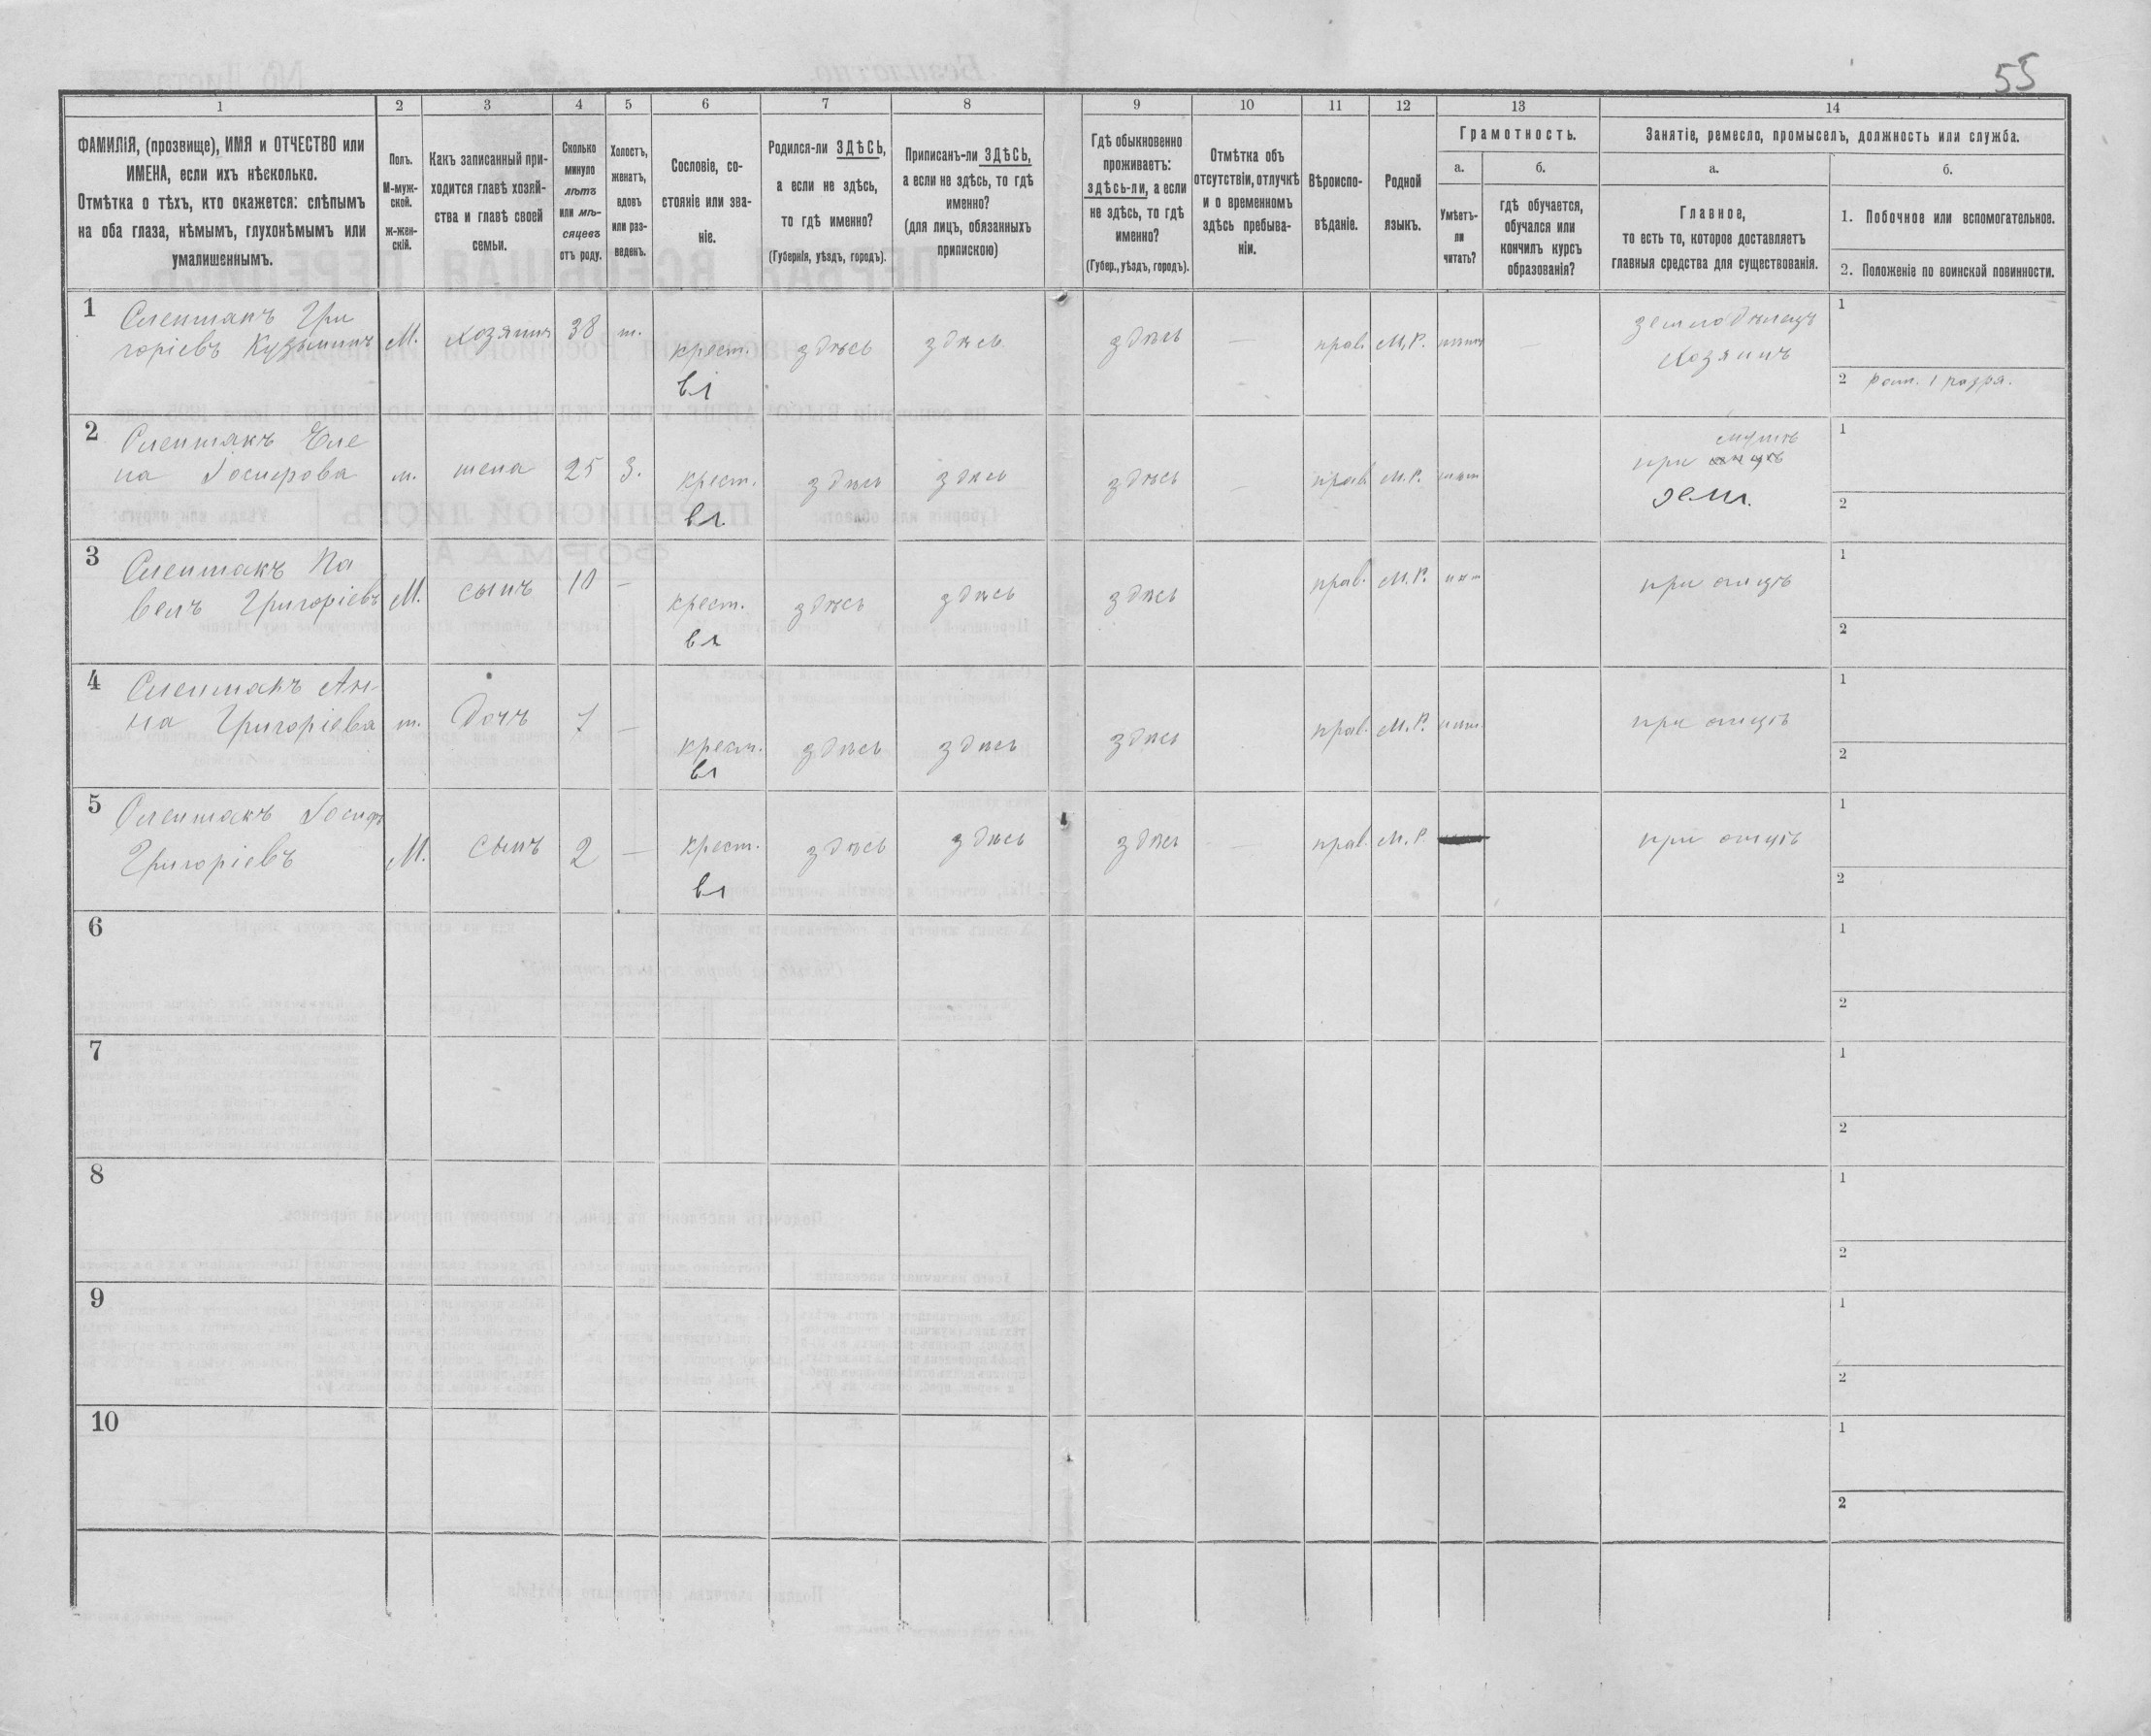 55
1 2 3 4 5 6 7 8 9 10 11 12 13 14
ФАМИЛІЯ, (прозвище), ИМЯ и ОТЧЕСТВО или
ИМЕНА, если ихъ нѣсколько.
Отмѣтка о тѣхъ, кто окажется: слѣпымъ
на оба глаза, нѣмымъ, глухонѣмымъ или
умалишеннымъ.
Полъ.
М-муж-
ской.
ж-жен-
скій.
Какъ записанный при-
ходится главѣ хозяй-
ства и главѣ своей
семьи.
Сколько
минуло
лѣтъ
или мѣ-
сяцевъ
отъ роду.
Холостъ,
женатъ,
вдовъ
или раз-
веденъ.
Сословіе, со-
стояніе или зва-
ніе.
Родился-ли ЗДѢСЬ,
а если не здѣсь,
то гдѣ именно?
(Губернія, уѣздъ, городъ).
Приписанъ-ли ЗДѢСЬ,
а если не здѣсь, то гдѣ
именно?
(для лицъ, обязанныхъ
припискою)
Гдѣ обыкновенно
проживаетъ:
здѣсь-ли, а если
не здѣсь, то гдѣ
именно?
(Губер., уѣздъ, городъ).
Отмѣтка объ
отсутствіи, отлучкѣ
и о временномъ
здѣсь пребыва-
ніи.
Вѣроиспо-
вѣданіе.
Родной
языкъ.
Грамотность.
а.
Умѣетъ-
ли
читать?
б.
гдѣ обучается,
обучался или
кончилъ курсъ
образованія?
Занятіе, ремесло, промыселъ, должность или служба.
а.
Главное,
то есть то, которое доставляетъ
главныя средства для существованія.
б.
1. Побочное или вспомогательное.
2. Положеніе по воинской повинности.
1
Гри
горіевъ Кузьминъ М. Хозяинъ 38 ж. крест. здѣсь здѣсь здѣсь — прав. М.Р. — земледѣлецъ
вл Хозяинъ
1
2
2
Еле
на Іосифова ж. жена 25 З. крест. здѣсь здѣсь здѣсь — прав. М.Р. при мужѣ
вл. земл.
1
2
3
Па
велъ Григоріевъ М. сынъ 10 — крест. здѣсь здѣсь здѣсь прав. М.Р. при отцѣ
вл
1
2
4
Ан
на Григоріева ж. дочь 7 — крест. здѣсь здѣсь здѣсь прав. М.Р. при отцѣ
вл
1
2
5
Іосифъ
Григоріевъ М. сынъ 2 — крест. здѣсь здѣсь здѣсь — прав. М.Р. при отцѣ
вл
1
2
6
1
2
7
1
2
8
1
2
9
1
2
10
1
2